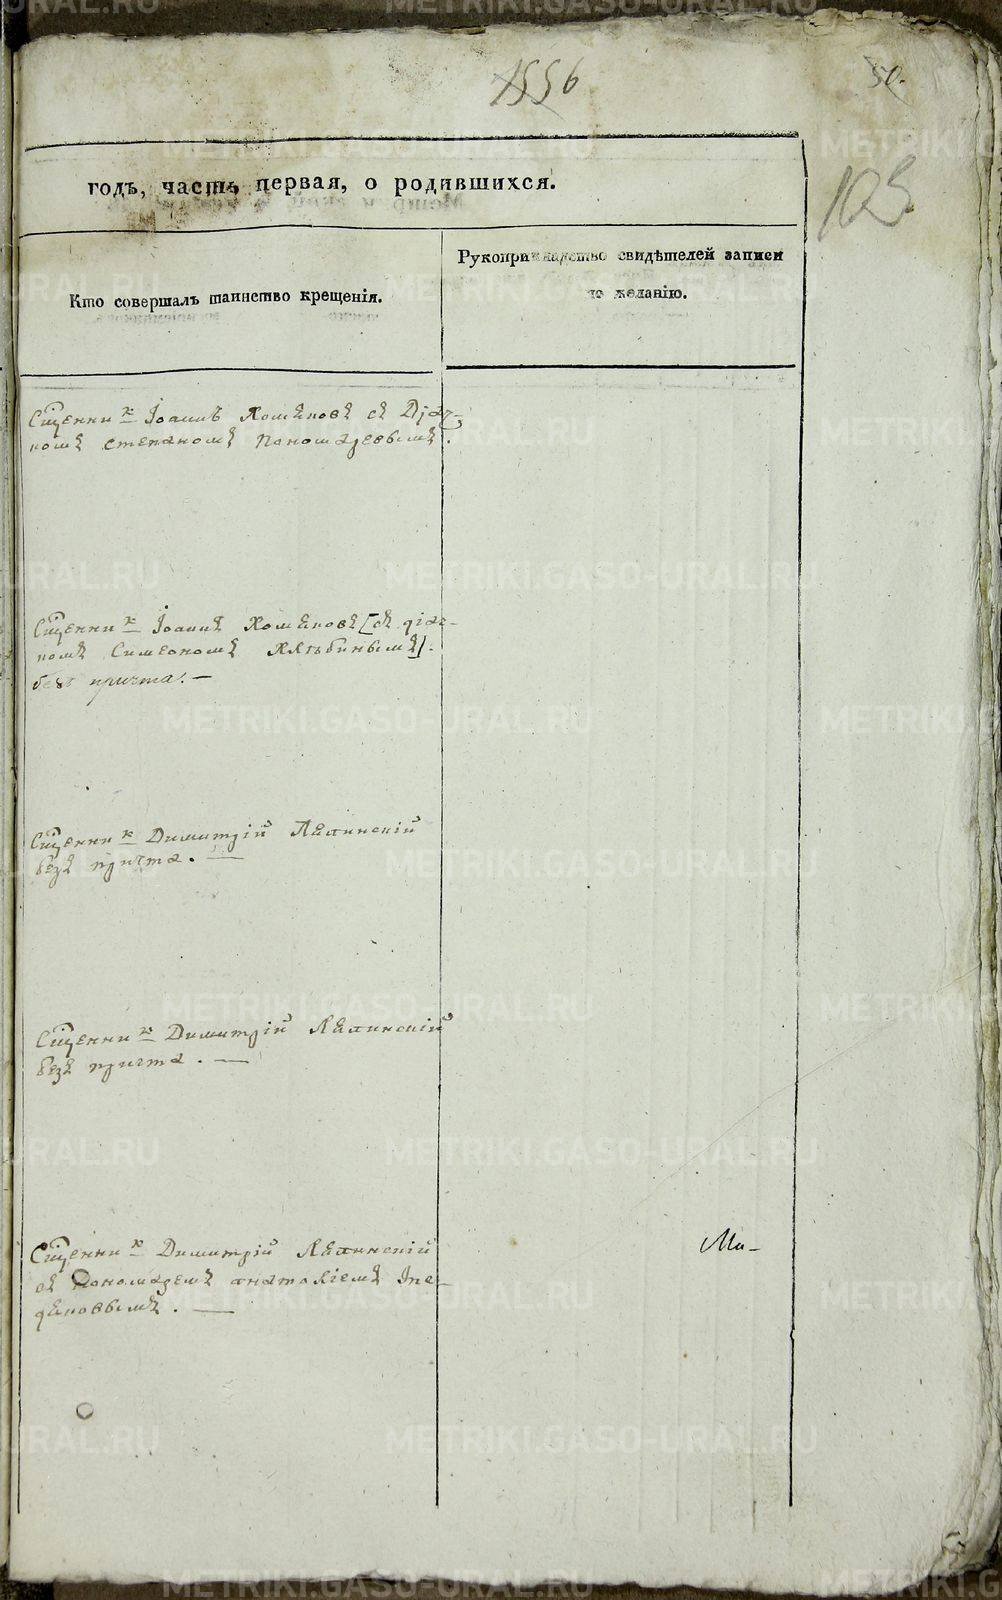 1556
50.
105
годъ, часть первая, о родившихся.
Кто совершалъ таинство крещенія.
Рукоприкладство свидѣтелей записи
по желанію.
Сщенникъ Іоаннъ Хомяковъ съ Діач-
комъ Степаномъ Пономаревымъ.
Сщенникъ Іоаннъ Хомяковъ [съ діач-
комъ Симеономъ].
безъ причта. —
Сщенникъ Димитрій Ляпинскій
безъ причта. —
Сщенникъ Димитрій Ляпинскій
безъ причта. —
Сщенникъ Димитрій Ляпинскій
съ Пономаремъ Анатоліемъ
. —
METRIKI.GASO-URAL.RU